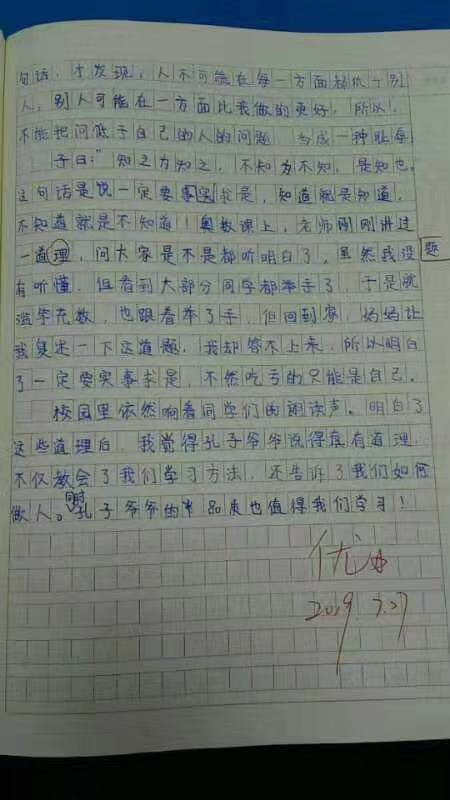 句话，才发现，人不可能在每一方面都低于别
人，别人可能在一方面比我做的更好，所以，
不能把问低于自己的人的问题，当成一种耻辱。
子曰：“知之为知之，不知为不知，是知也。
这句话是说一定要事实求是，知道就是知道，
不知道就是不知道！奥数课上，老师刚刚讲过
一道理，问大家是不是都听明白了，虽然我没
题
有听懂，但看到大部分同学都举手了，于是就
滥竽充数，也跟着举了手，但回到家，妈妈让
我复述一下这道题，我却答不上来，所以明白
了一定要实事求是，不然吃亏的只能是自己。
校园里依然响着同学们的朗读声。明白了
这些道理后，我觉得孔子爷爷说得真有道理，
不仅教会了我们学习方法，还告诉了我们如何
做人。孔子爷爷的品质也值得我们学习！
优
2019 7.27